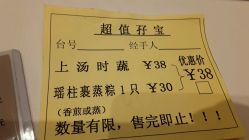 超值孖宝
台号 经手人
上汤时蔬 ¥38
瑶柱裹蒸粽1只 ¥30
(香煎或蒸)
优惠价
¥38
数量有限，售完即止!!!